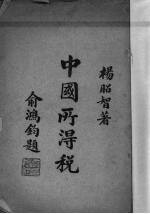 楊昭智著
中國所得税
俞鴻鈞題